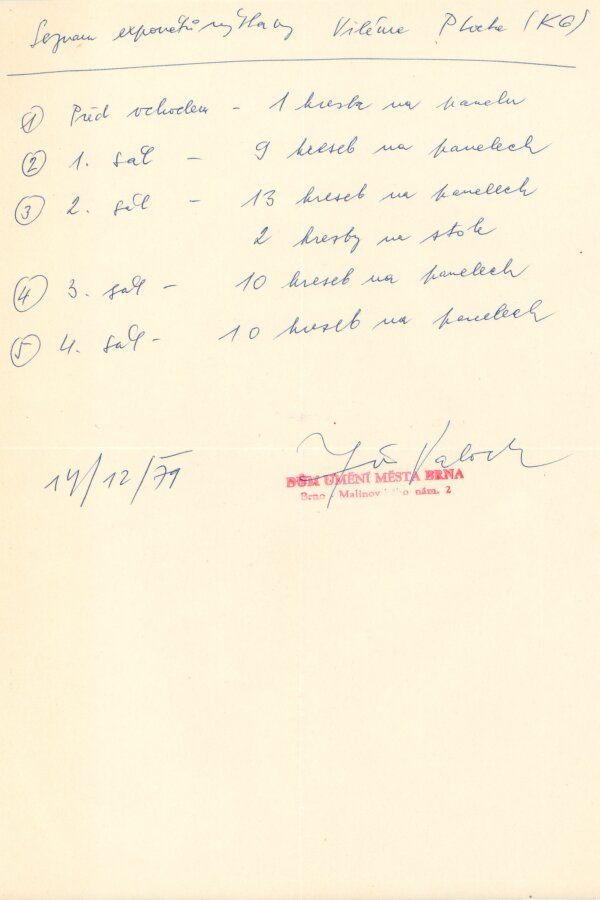 Seznam exponátů výstavy Viléma Plocka (KG)
① Před vchodem - 1 kresba na panelu
② 1. sál - 9 kreseb na panelech
③ 2. sál - 13 kreseb na panelech
2 kresby na stole
④ 3. sál - 10 kreseb na panelech
⑤ 4. sál - 10 kreseb na panelech
14/12/79 Jiří Valoch
DŮM UMĚNÍ MĚSTA BRNA
Brno, Malinovského nám. 2